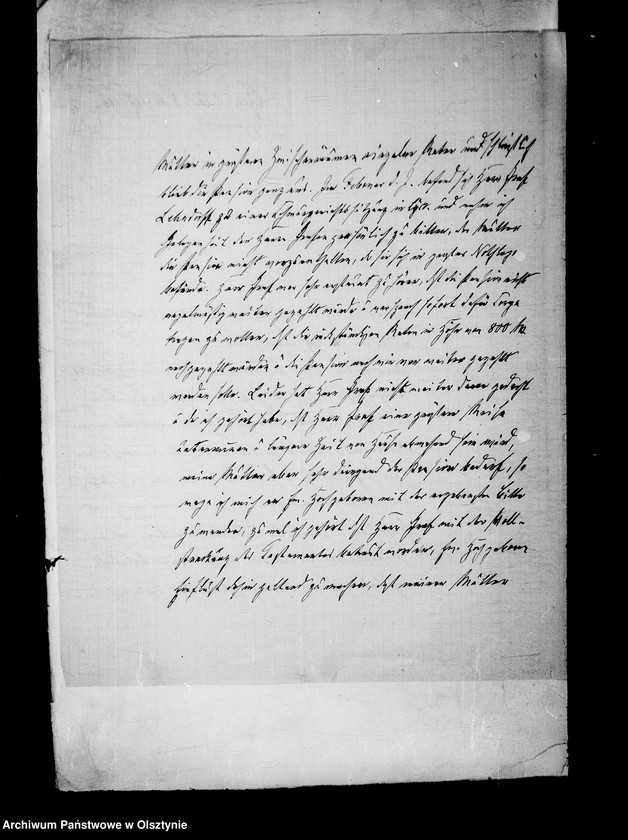 Mutter in größeren Zwischenräumen einzelne Raten und schließlich
blieb die Pension ganz aus. Im Februar d. J. befand sich Herr Graf
Lehndorff zu einer Schwurgerichtssitzung in Lyck und nahm ich
Gelegenheit den Herrn Grafen persönlich zu bitten, der Mutter
die Pension nicht vorzuenthalten, da sie sich in großer Nothlage
befände. Herr Graf war sehr erstaunt zu hören, dß die Pension nicht
regelmäßig weiter gezahlt würde u versprach sofort dafür Sorge
tragen zu wollen, dß die rückständigen Raten in Höhe von 800 Mk.
nachgezahlt würden u die Pension nach wie vor weiter gezahlt
werden solle. Leider hat Herr Graf nicht weiter daran gedacht
u da ich gehört habe, dß Herr Graf eine größere Reise
unternommen u längere Zeit von Hause abwesend sein wird,
meine Mutter aber sehr dringend der Pension bedarf, so
wage ich mich an Ew. Hochgeboren mit der ergebensten Bitte
zu wenden, zumal ich gehört dß Herr Graf mit der Voll-
streckung des Testamentes betraut worden, Ew. Hochgeboren
Einfluß dahin geltend zu machen, daß meiner Mutter
Archiwum Państwowe w Olsztynie